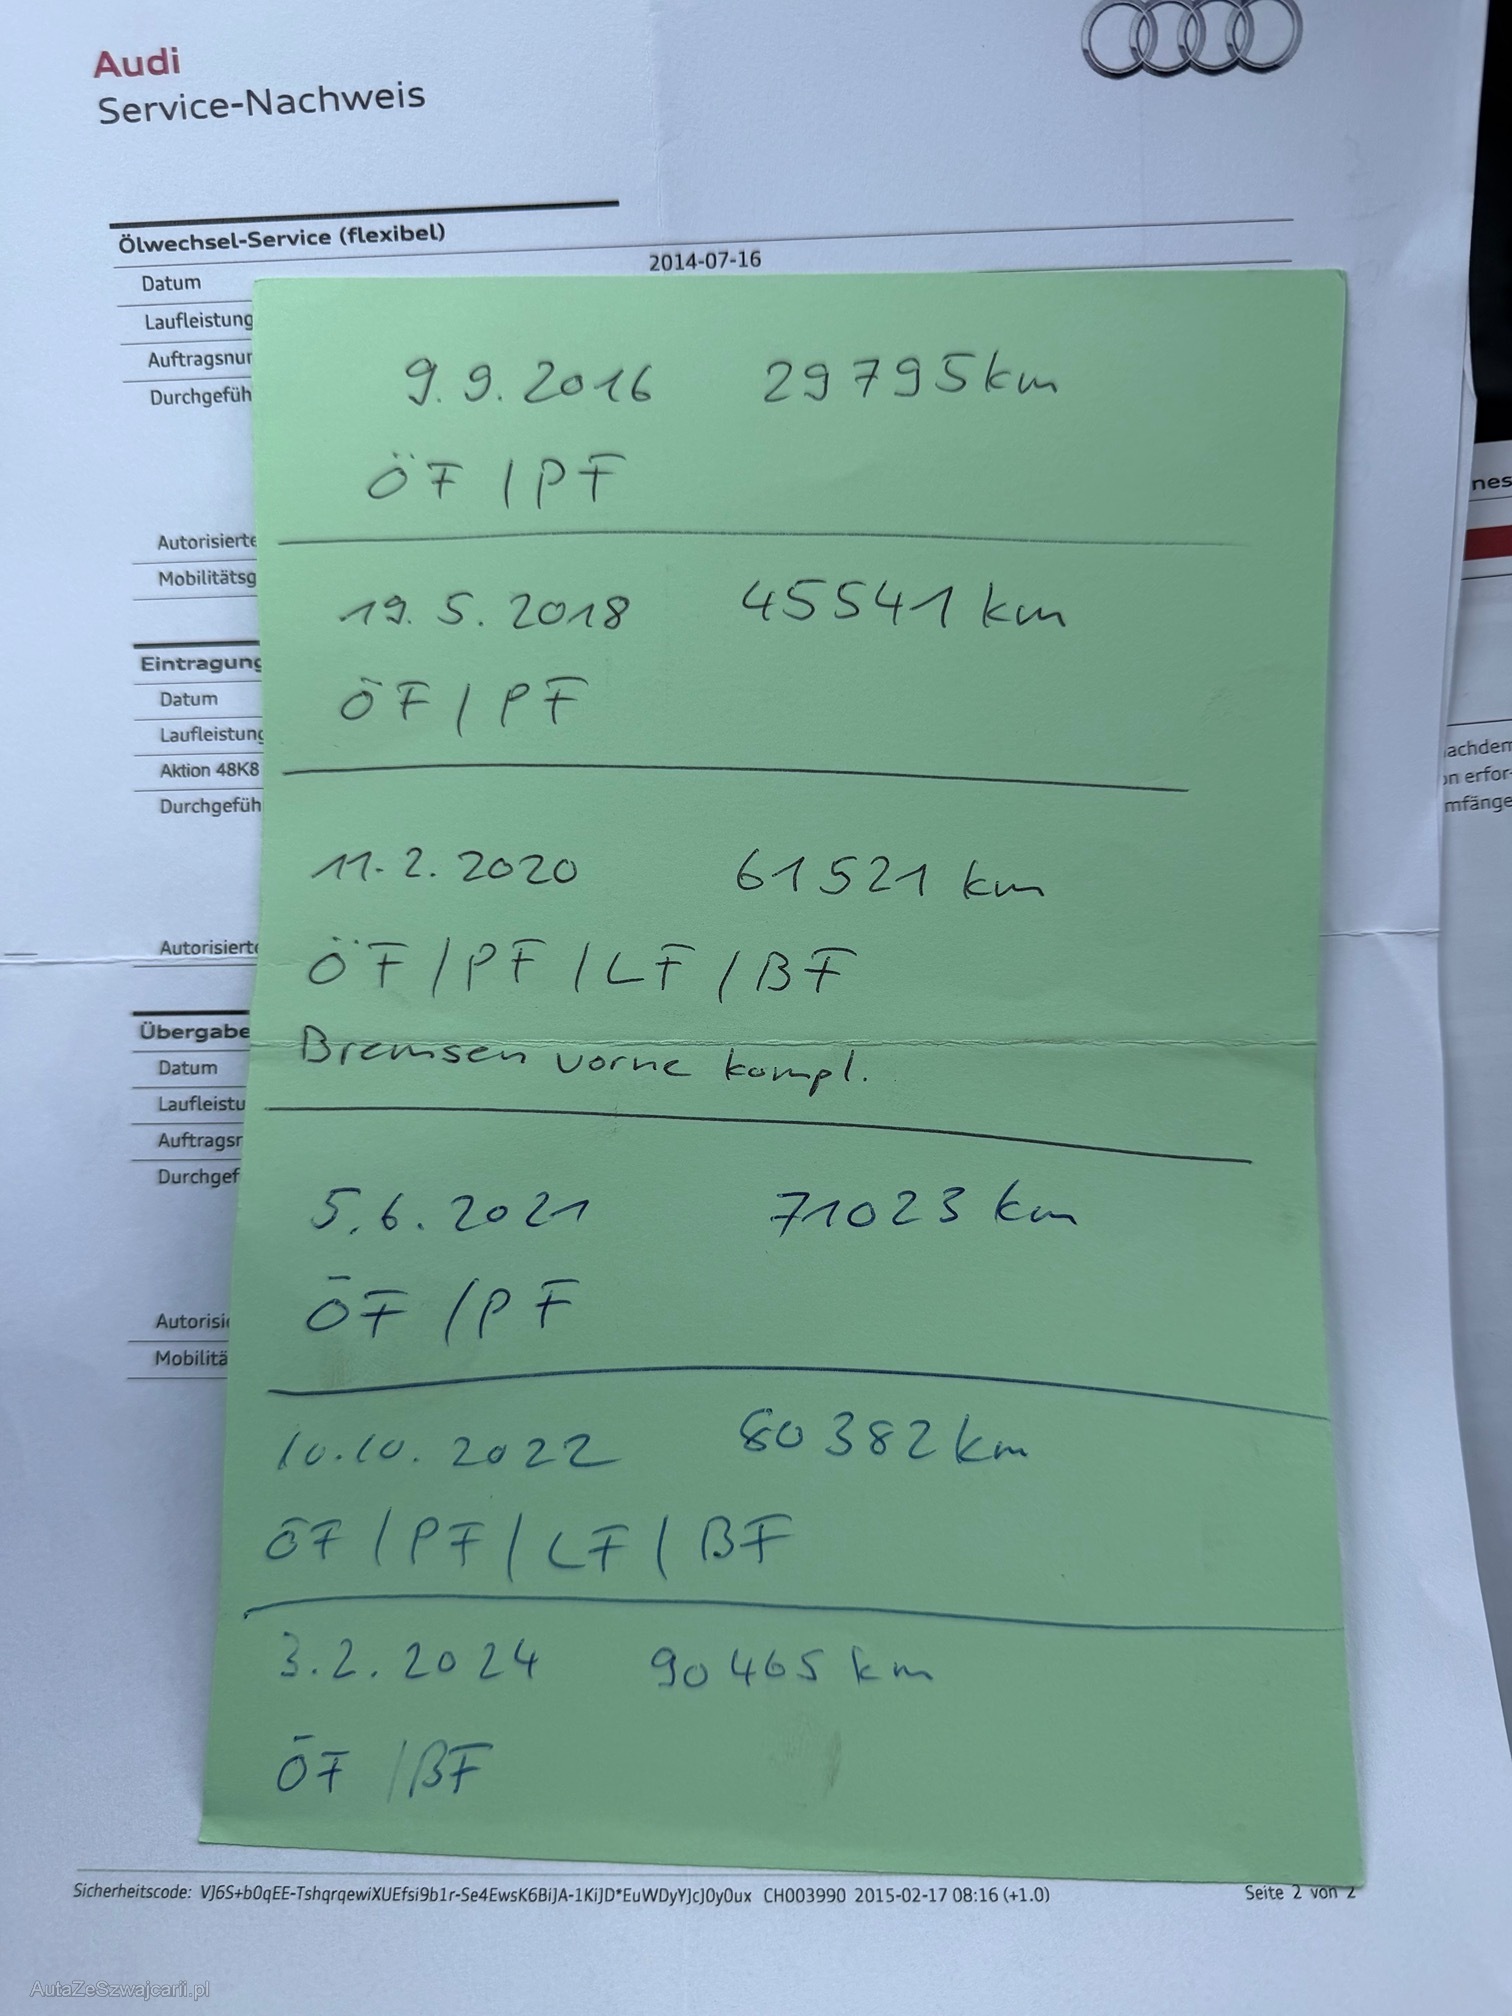 Audi
Service-Nachweis
Ölwechsel-Service (flexibel)
Datum 2014-07-16
Laufleistung
Auftragsnur
Durchgefüh
Autorisierte
Mobilitätsg
Eintragung
Datum
Laufleistung
Aktion 48K8
Durchgefüh
Autorisierte
Übergabe
Datum
Laufleistu
Auftragsr
Durchgef
Autorisi
Mobilitä
9.9.2016 29795km
ÖF / PF
19.5.2018 45541 km
ÖF / PF
11.2.2020 61521 km
ÖF / PF / LF / BF
Bremsen vorne kompl.
5.6.2021 71023 km
ÖF / PF
10.10.2022 80382 km
ÖF / PF / LF / BF
3.2.2024 90465 km
ÖF / BF
nes
achdem
on erfor-
mfänge
Sicherheitscode: VJ6S+b0qEE-TshqrqewiXUEfsi9b1r-Se4EwsK6BiJA-1KiJD*EuWDyYJcJ0y0ux CH003990 2015-02-17 08:16 (+1.0) Seite 2 von 2
AutaZeSzwajcarii.pl